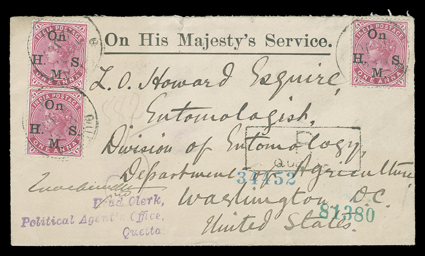 On
H. S.
M.
INDIA POSTAGE
ONE ANNA
On
H. S.
M.
INDIA POSTAGE
ONE ANNA
On
H. S.
M.
INDIA POSTAGE
ONE ANNA
On His Majesty's Service.
L. O. Howard Esquire,
Entomologist,
Division of Entomology,
Department of Agriculture
Washington D.C.
United States.
34152
81380
Head Clerk,
Political Agent's Office,
Quetta